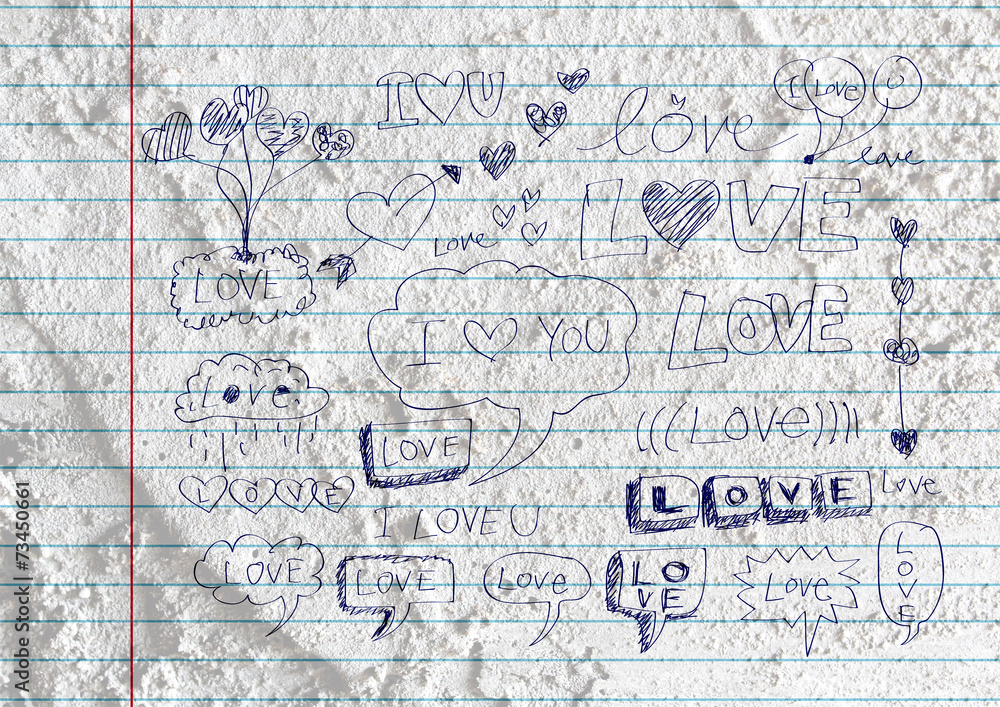 I U
I Love U
love
love
L VE
Love
LOVE
I YOU
LOVE
Love
LOVE
(((Love))))
L O V E
LOVE
Love
I LOVE U
LOVE
LOVE
Love
LO
VE
Love
L
O
V
E
Adobe Stock | #73450661